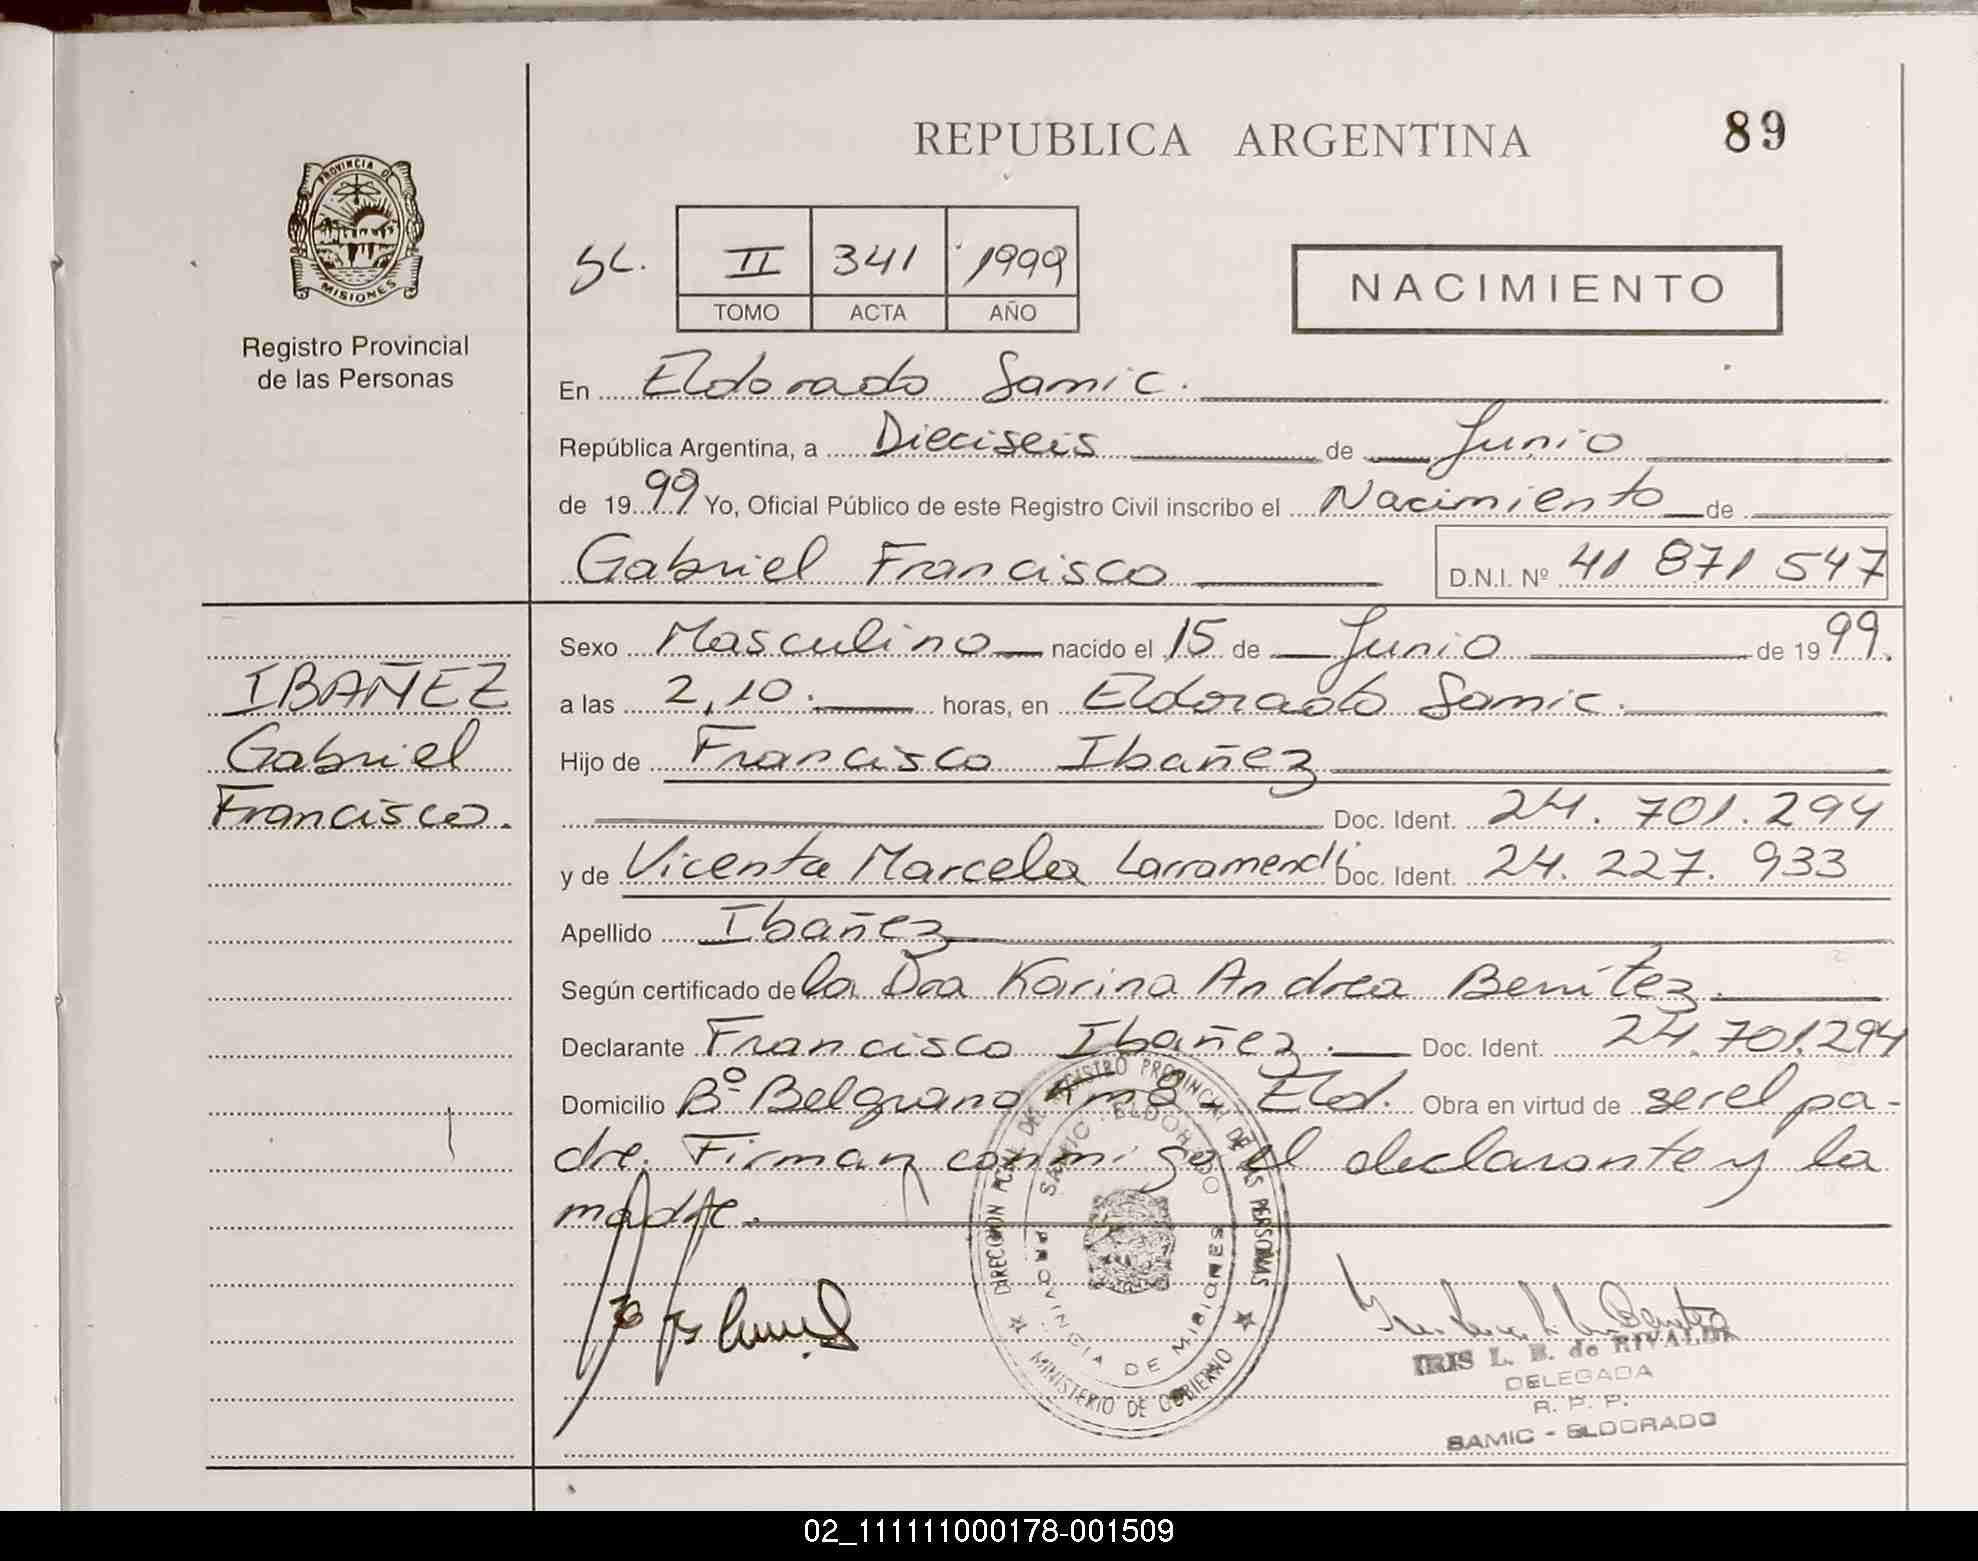 REPUBLICA ARGENTINA
89
PROVINCIA D
MISIONES
Registro Provincial
de las Personas
II 341 1999
TOMO ACTA AÑO
NACIMIENTO
En Eldorado Samic.
República Argentina, a Dieciseis de Junio
de 1999 Yo, Oficial Público de este Registro Civil inscribo el Nacimiento de
Gabriel Francisco D.N.I. Nº 41 871 547
IBAÑEZ
Gabriel
Francisco.
Sexo Masculino nacido el 15 de Junio de 1999.
a las 2,10. horas, en Eldorado Samic.
Hijo de Francisco Ibañez
Doc. Ident. 24.701.294
y de Vicenta Marcela Larramendi Doc. Ident. 24.227.933
Apellido Ibañez
Según certificado de la Dra Karina Andrea Benítez.
Declarante Francisco Ibañez. Doc. Ident. 24.701.294
Domicilio Bº Belgrano Km 8 - Eld. Obra en virtud de ser el pa-
dre. Firman conmigo el declarante y la
madre.
DIRECCION PCIAL DEL REGISTRO PROVINCIAL DE LAS PERSONAS
SAMIC - ELDORADO
PROVINCIA DE MISIONES
MINISTERIO DE GOBIERNO
IRIS L. B. de RIVALDI
DELEGADA
R. P. P.
SAMIC - ELDORADO
02_111111000178-001509